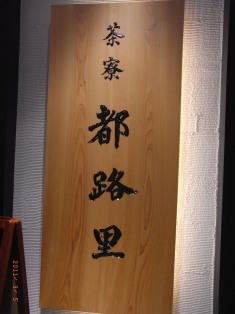 茶寮
都路里
2011/3/5